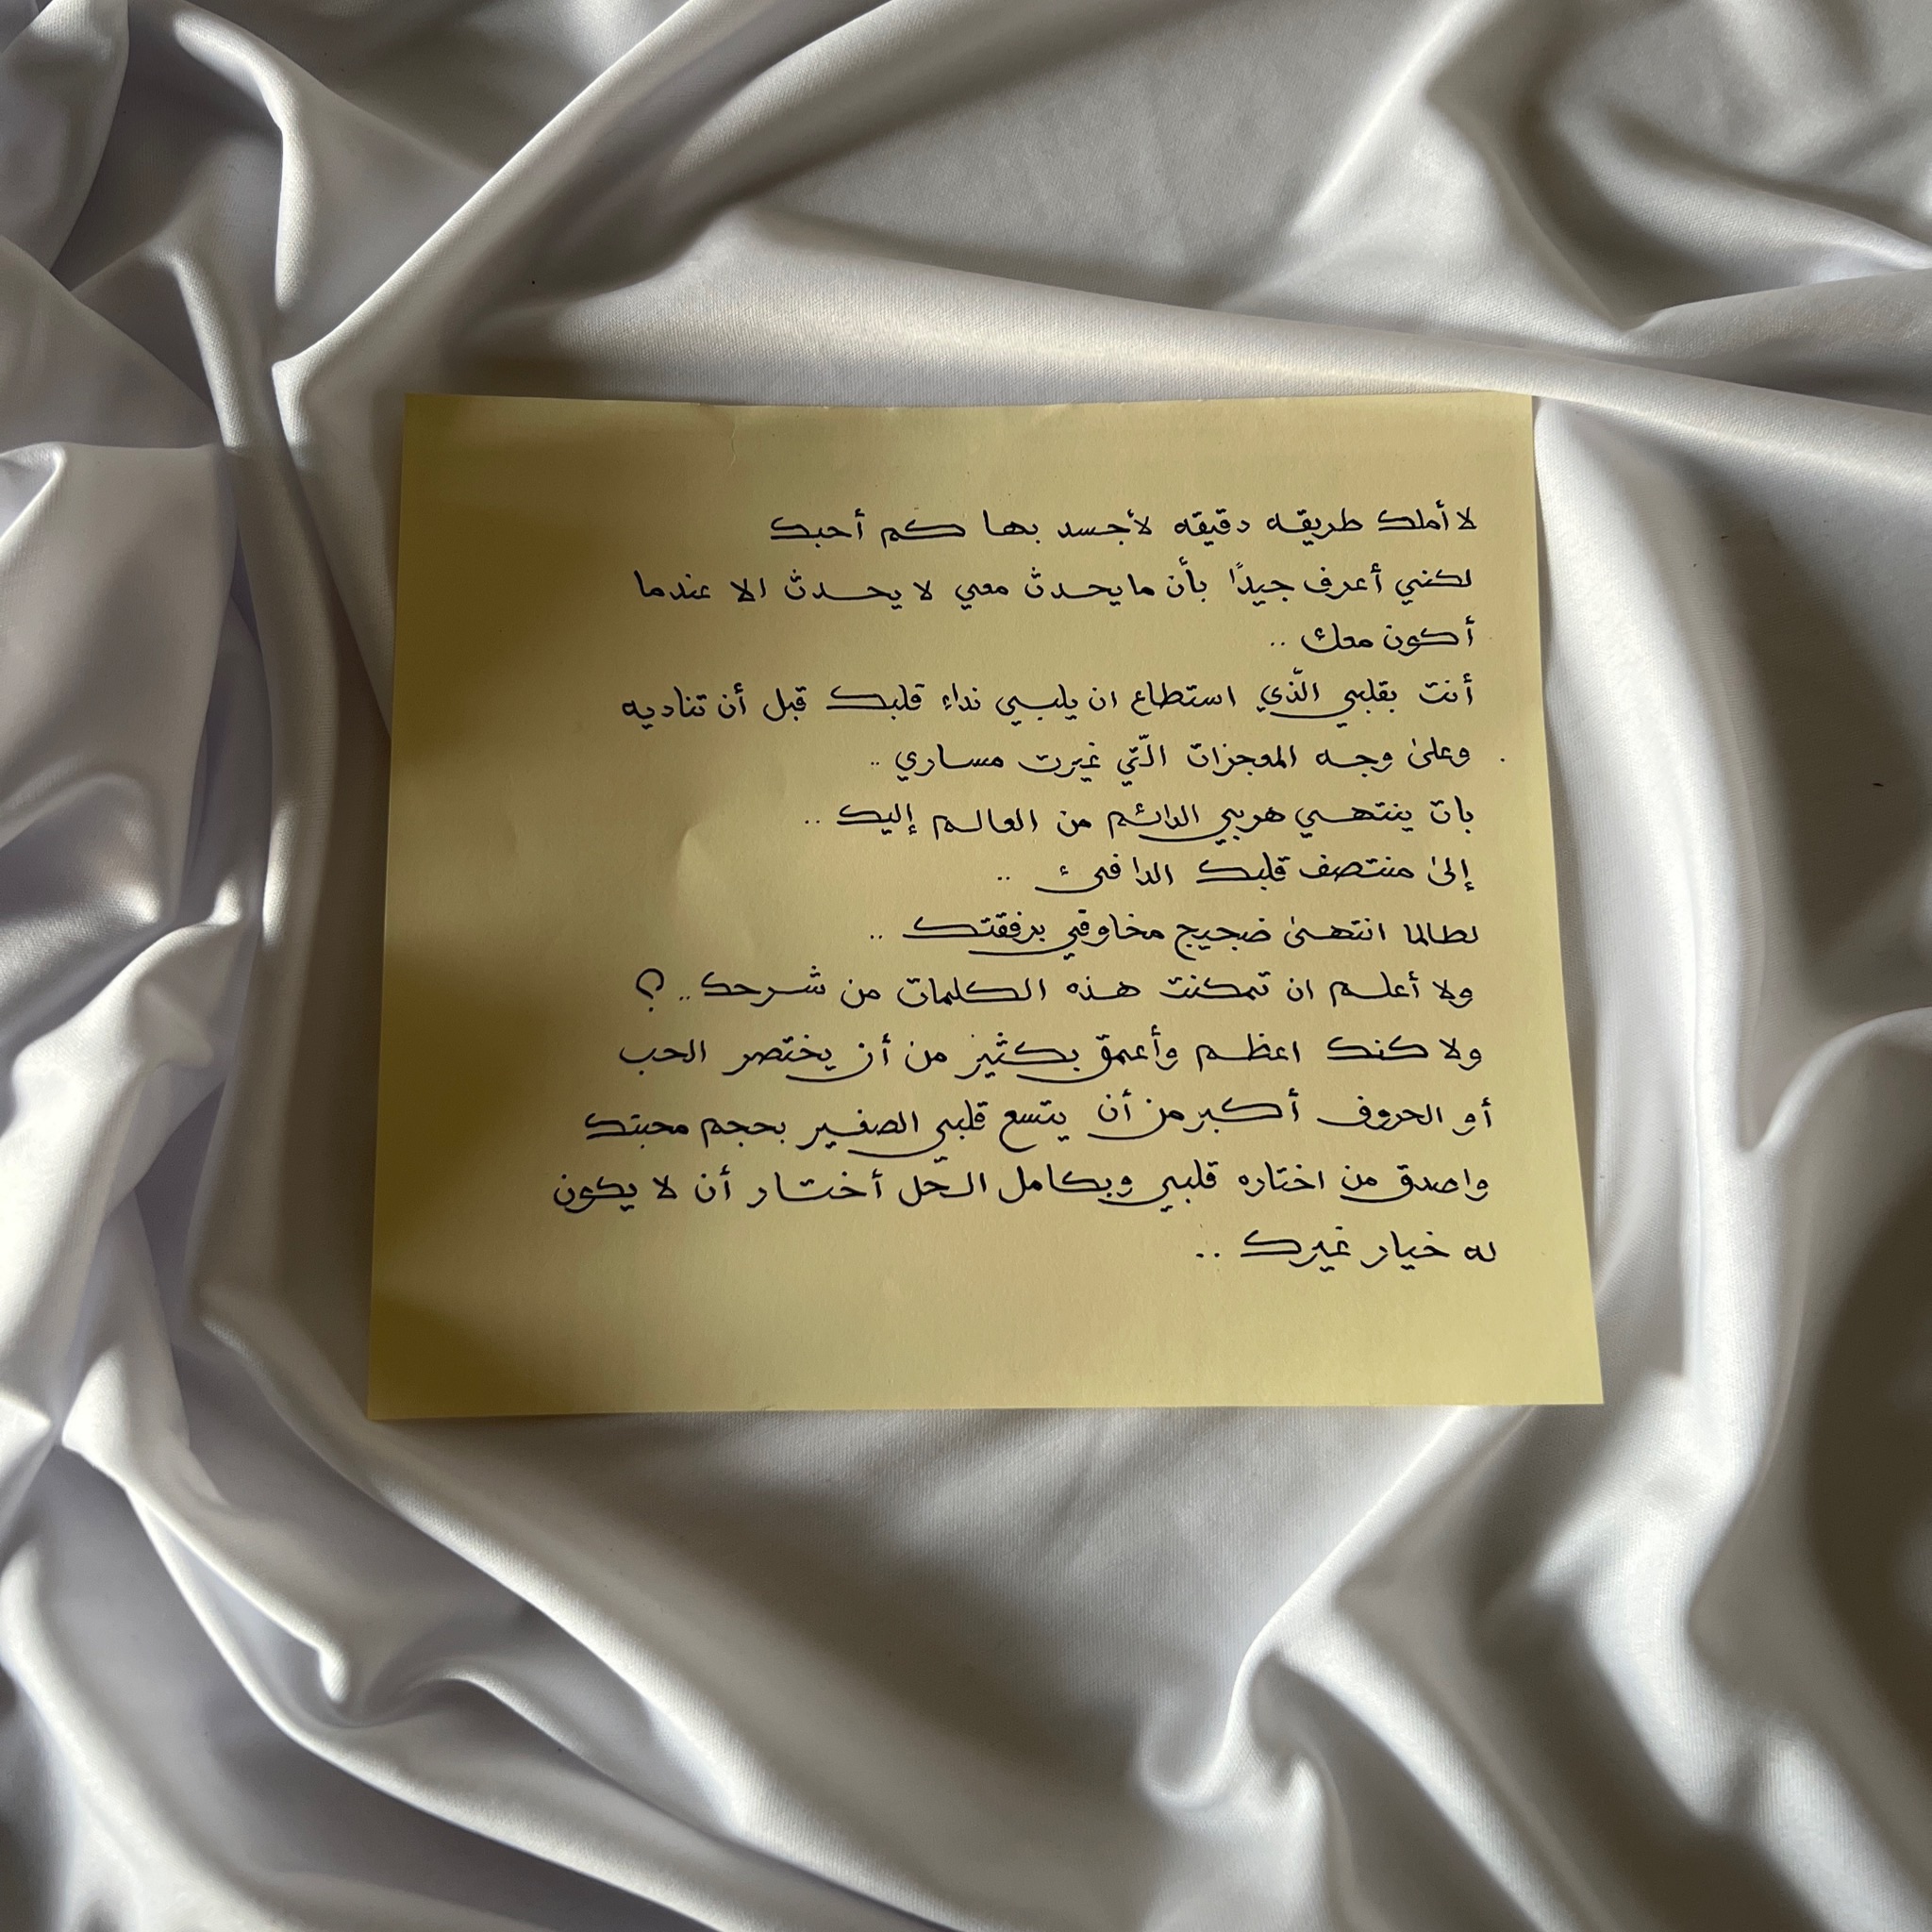 لا أملك طريقه دقيقه لأجسد بها كم أحبك
لكنني أعرف جيدًا بأن مايحدث معي لا يحدث الا عندما
أكون معك ..
أنت بقلبي الّذي استطاع ان يلبي نداء قلبك قبل أن تناديه
وعلىٰ وجه المعجزات الّتي غيرت مساري ..
بات ينتهي هربي الدائم من العالم إليك ..
إلىٰ منتصف قلبك الدافئ ..
لطالما انتهىٰ ضجيج مخاوفي برفقتك ..
ولا أعلم ان تمكنت هذه الكلمات من شرحك .. ؟
ولا كنك اعظم وأعمق بكثير من أن يختصر الحب
أو الحروف أكبر من أن يتسع قلبي الصغير بحجم محبتك
واصدق من اختاره قلبي وبكامل الحّل أختار أن لا يكون
له خيار غيرك ..